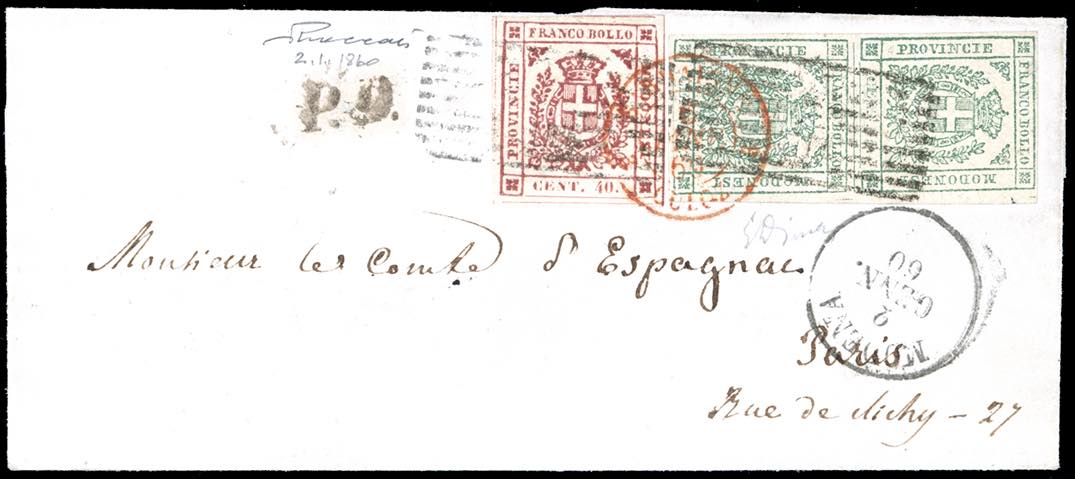 2.1.1860
P.D.
FRANCO BOLLO
PROVINCIE
CENT. 40.
PROVINCIE
FRANCO BOLLO
MODONESI
PROVINCIE
FRANCO BOLLO
MODONESI
Monsieur le Comte d'Espagnac
MODENA
2
GENN.
60
Paris
Rue de Clichy - 27